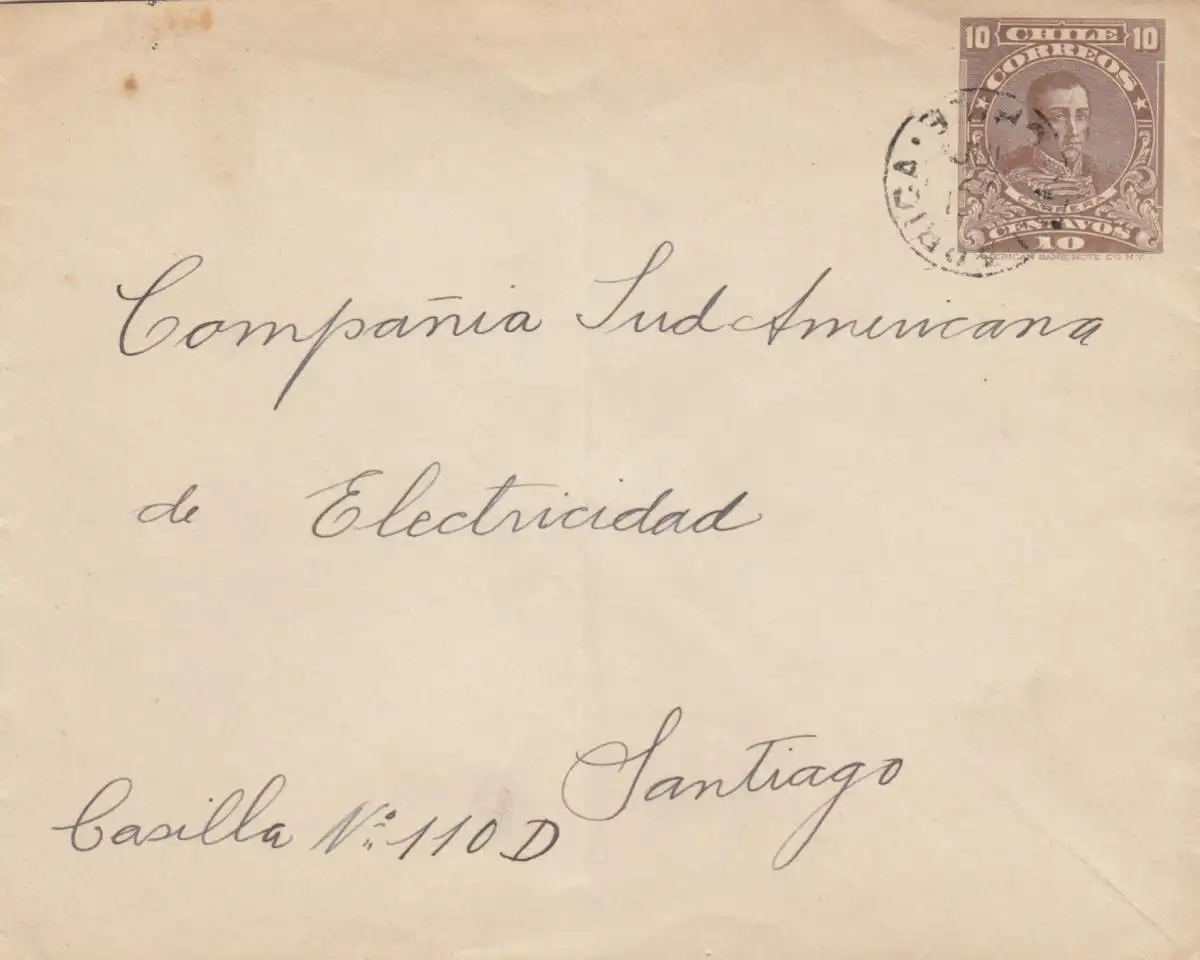 10 CHILE 10
CORREOS
CARRERA
CENTAVOS
10
AMERICAN BANK NOTE CO. N.Y.
Compañia Sud Americana
de Electricidad
Santiago
Casilla Nº 110 D